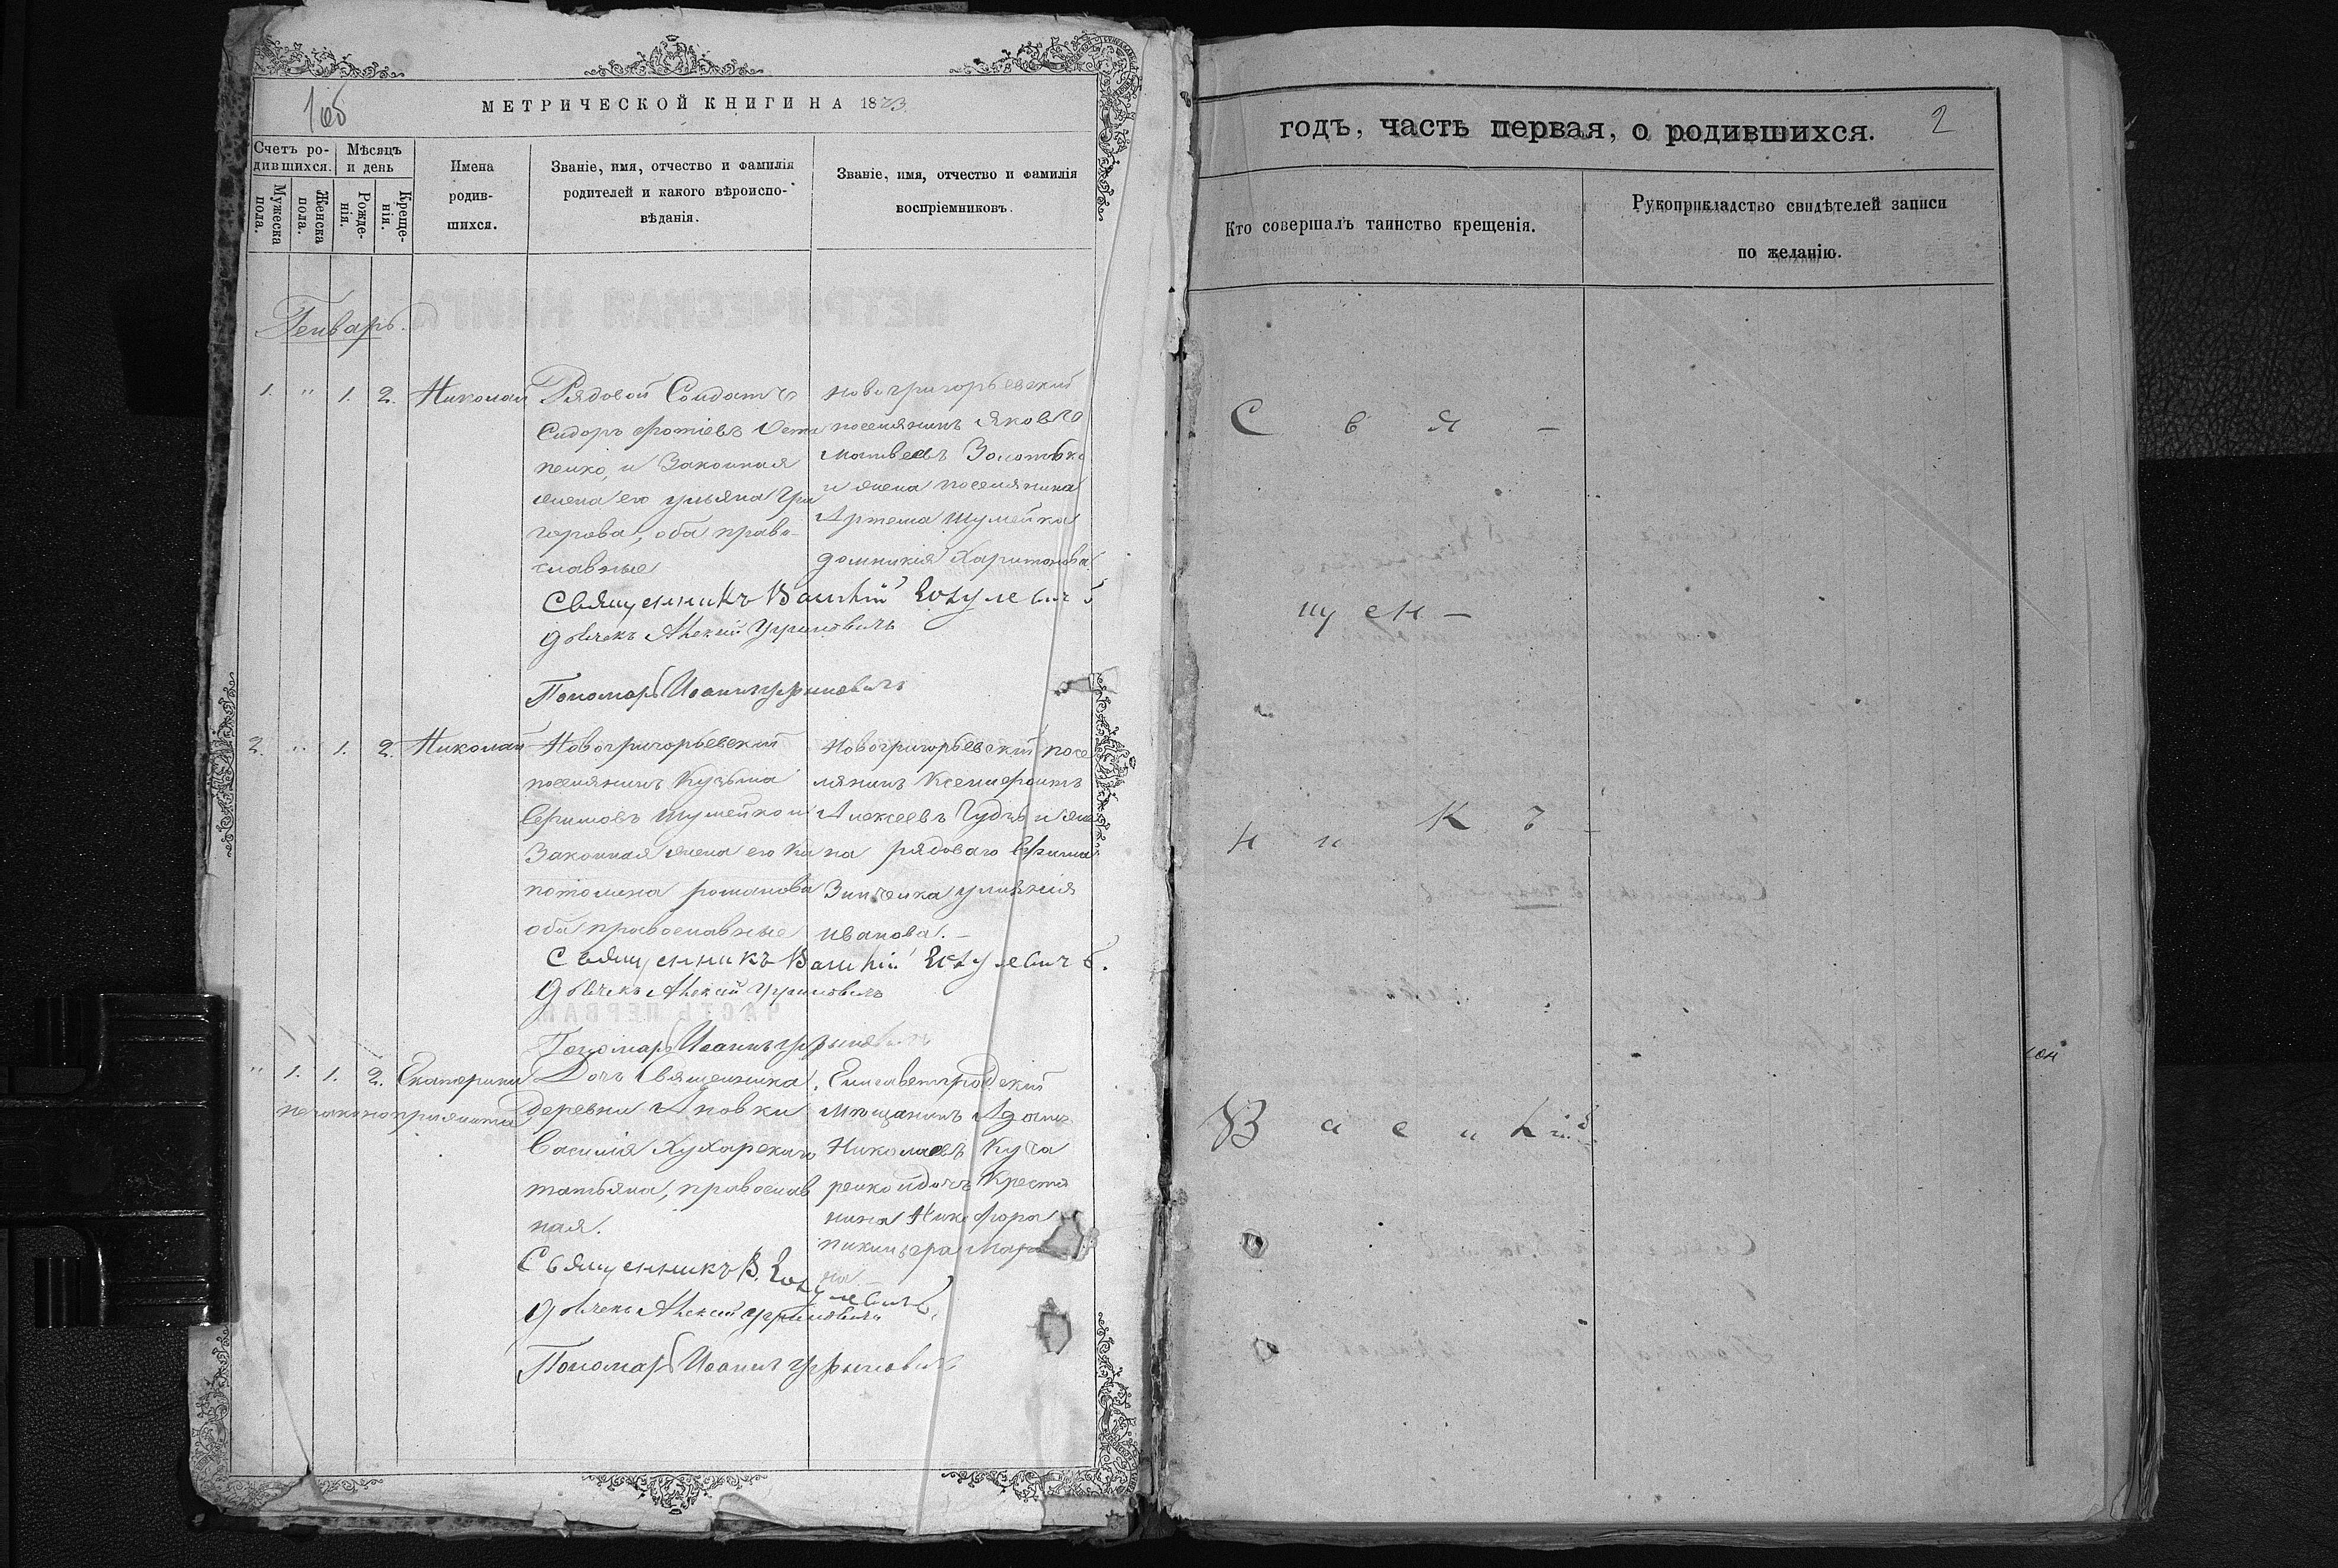 1об
МЕТРИЧЕСКОЙ КНИГИ НА 1873.
Счетъ ро-
дившихся.
Мѣсяцъ
и день
Мужеска
пола.
Женска
пола.
Рожде-
нія.
Креще-
нія.
Имена
родив-
шихся.
Званіе, имя, отчество и фамилія
родителей и какого вѣроиспо-
вѣданія.
Званіе, имя, отчество и фамилія
воспріемниковъ.
Генварь.
1. " 1. 2. Николай
Рядовой Солдатъ
Сидоръ Фотіевъ Оста
пенко, и Законная
жена его Ульяна Гри
горова, оба право-
славные
новогригорьевскій
поселянинъ Яковъ
Матвеевъ Золотько
и жена поселянина
Артема Шумейка
Домникія Харитонова
Священникъ Василій
Дьячекъ Алексій
Пономарь Иоаннъ
2. " 1. 2. Николай
Новогригорьевскій
поселянинъ Кузьма
Ефимовъ Шумейко и
Законная жена его Ки
потомена романова
оба православные
Новогригорьевскій посе
лянинъ Ксенофонтъ
Алексеевъ Чудъ и же
на рядоваго Ефима
Зинченка улиянія
иванова.-
Священникъ Василій
Дьячекъ Алексій
Пономарь Иоаннъ
" 1. 1. 2. Екатерина
незаконоприжита
Дочь Священника
деревни
Василія Хухарскаго
татьяна, православ
ная.
Елисаветградскій
Мѣщанинъ Адамъ
Николаевъ Куча
ренко и дочь Крестя
нина Никифора
пикинера Мари
на.-
Священникъ В.
Дьячекъ Алексій
Пономарь Иоаннъ
годъ, часть первая, о родившихся.
2
Кто совершалъ таинство крещенія.
Рукоприкладство свидѣтелей записи
по желанію.
С в я -
щ ен -
н и К ъ
В а с и лій